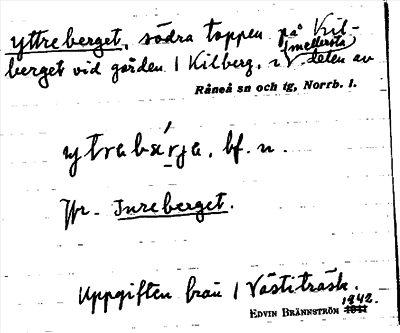 Yttre berget, södra toppen på Kil-
berget vid gården 1 Kilberg, i mellersta delen av
Råneå sn och tg, Norrb. l.
ytrabärja, bf. n.
Jfr. Inreberget.
Uppgiften från 1 Västiträsk.
EDVIN BRÄNNSTRÖM 1942.